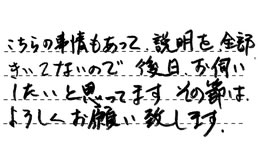 こちらの事情もあって、説明を全部
きいてないので後日、お伺い
したいと思ってます その節は
よろしくお願い致します。